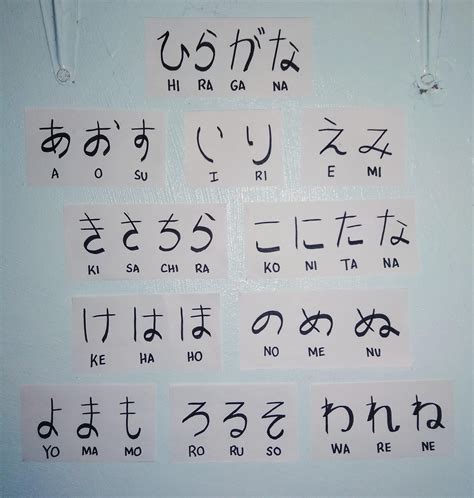 ひらがな
HI RA GA NA
あおす
A O SU
いり
I RI
えみ
E MI
きさちら
KI SA CHI RA
こにたな
KO NI TA NA
けはほ
KE HA HO
のめぬ
NO ME NU
よまも
YO MA MO
ろるそ
RO RU SO
われね
WA RE NE